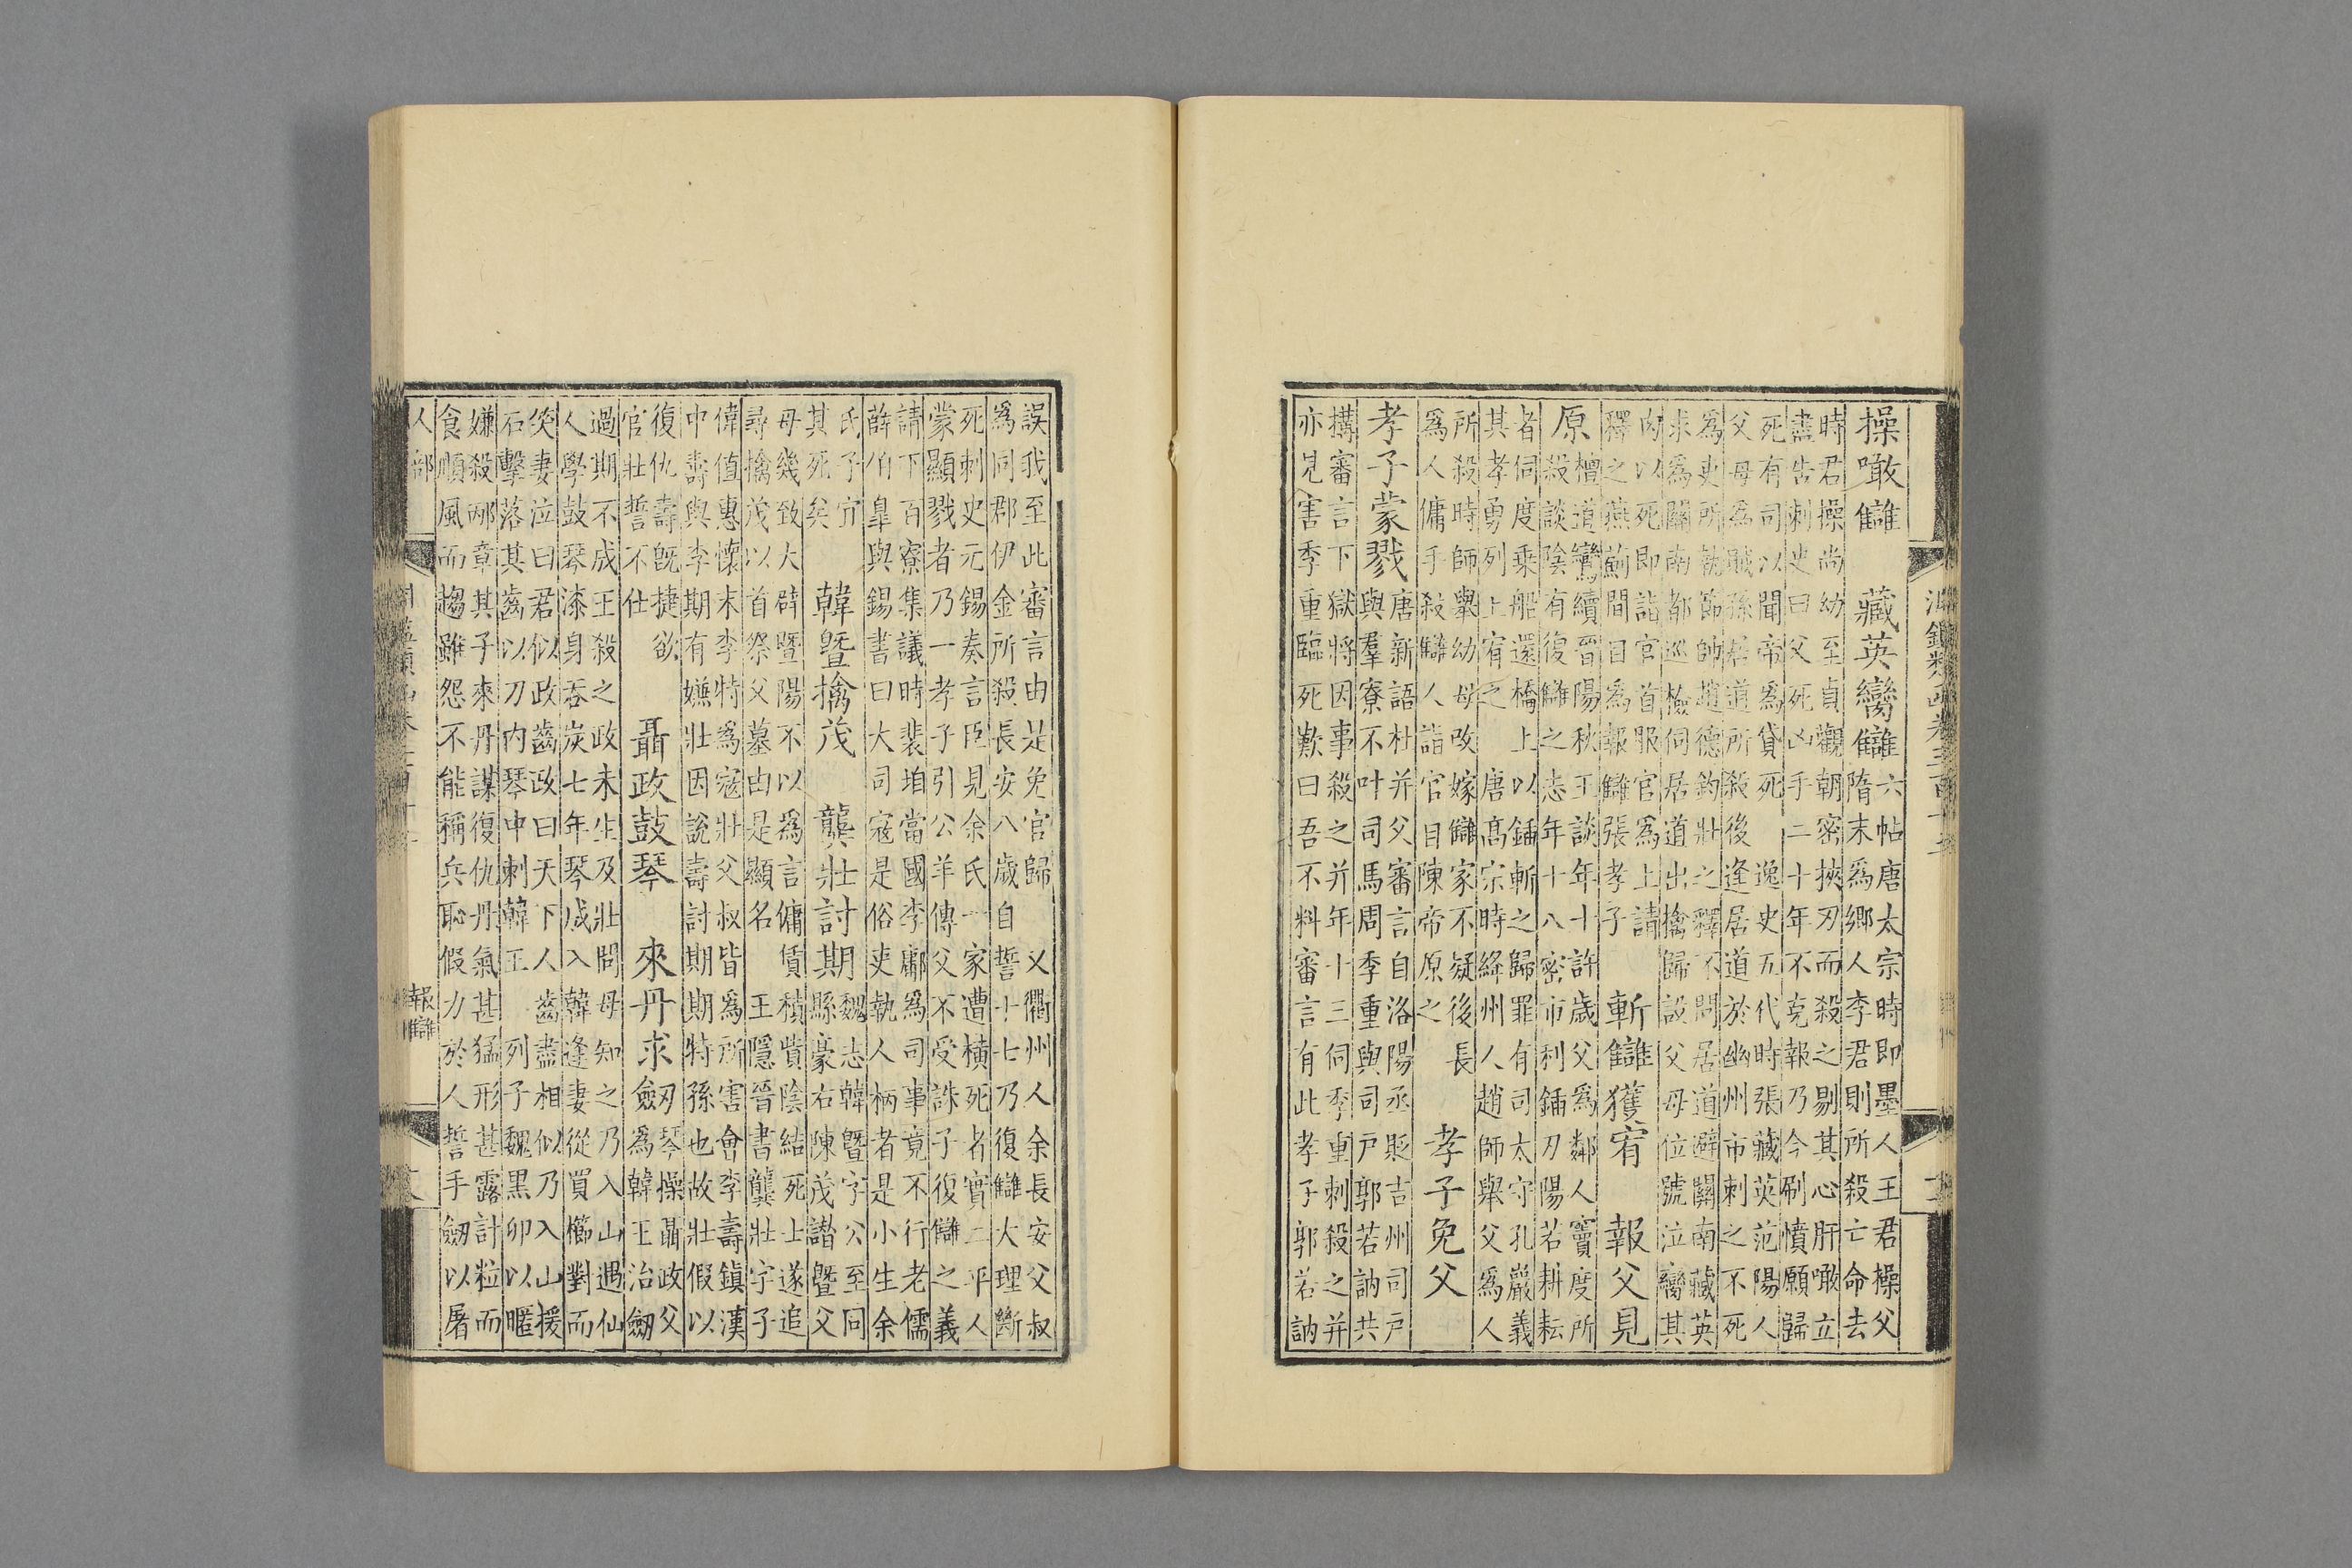 操噉讎　藏英臠讎
六帖唐太宗時即墨人王君操父
隋末爲鄉人李君則所殺亡命去
時君操尚幼至貞觀朝密挾刃而殺之剔其心肝噉立
盡告刺史曰父死凶手二十年不克報乃今刷憤願歸
死有司以聞帝爲貸死　逸史五代時張藏英范陽人
父母爲賊孫居道所殺後逢居道於幽州市刺之不死
爲吏所執節帥趙德鈞壯之釋不問居道避關南藏英
求爲關南都巡檢伺居道出擒歸設父母位號泣臠其
肉以死即詣官首服官爲上請
釋之燕薊間目爲報讎張孝子
斬讎獲宥　報父見
原
檀道鸞續晉陽秋王談年十許歲父爲鄰人竇度所
殺談陰有復讎之志年十八密市利鍤刃陽若耕耘
者伺度乗船還橋上以鍤斬之歸罪有司太守孔巖義
其孝勇列上宥之　唐高宗時絳州人趙師舉父爲人
所殺時師舉幼母改嫁讎家不疑後長
爲人傭手殺讎人詣官自陳帝原之
孝子免父
孝子蒙戮
唐新語杜并父審言自洛陽丞貶吉州司戶
與羣寮不叶司馬周季重與司戶郭若訥共
搆審言下獄將因事殺之并年十三伺季重刺殺之并
亦見害季重臨死歎曰吾不料審言有此孝子郭若訥
誤我至此審言由是免官歸　又衢州人余長安父叔
爲同郡伊金所殺長安八歲自誓十七乃復讎大理斷
死刺史元錫奏言臣見余氏一家遭橫死者實二平人
蒙顯戮者乃一孝子引公羊傳父不受誅子復讎之義
請下百寮集議時裴垍當國李鄘爲司事竟不行老儒
薛伯皐與錫書曰大司寇是俗吏執人柄者是小生余
氏子宜
其死矣
韓曁擒茂　龔壯討期
魏志韓曁字公至同
縣豪右陳茂譖曁父
母幾致大辟曁陽不以爲言傭賃積貲陰結死士遂追
尋擒茂以首祭父墓由是顯名　王隱晉書龔壯字子
偉值惠懷末李特爲寇壯父叔皆爲所害會李壽鎮漢
中壽與李期有嫌壯因說壽討期期特孫也故壯假以
復仇壽旣捷欲
官壯誓不仕
聶政鼓琴　來丹求劒
琴操聶政父
爲韓王治劒
過期不成王殺之政未生及壯問母知之乃入山遇仙
人學鼓琴漆身吞炭七年琴成入韓逢妻從買櫛對而
笑妻泣曰君似政齒政曰天下人齒盡相似乃入山援
石擊落其齒以刀內琴中刺韓王　列子魏黑卵以暱
嫌殺邴章其子來丹謀復仇丹氣甚猛形甚露計粒而
食順風而趨雖怨不能稱兵恥假力於人誓手劒以屠
人部
報讎